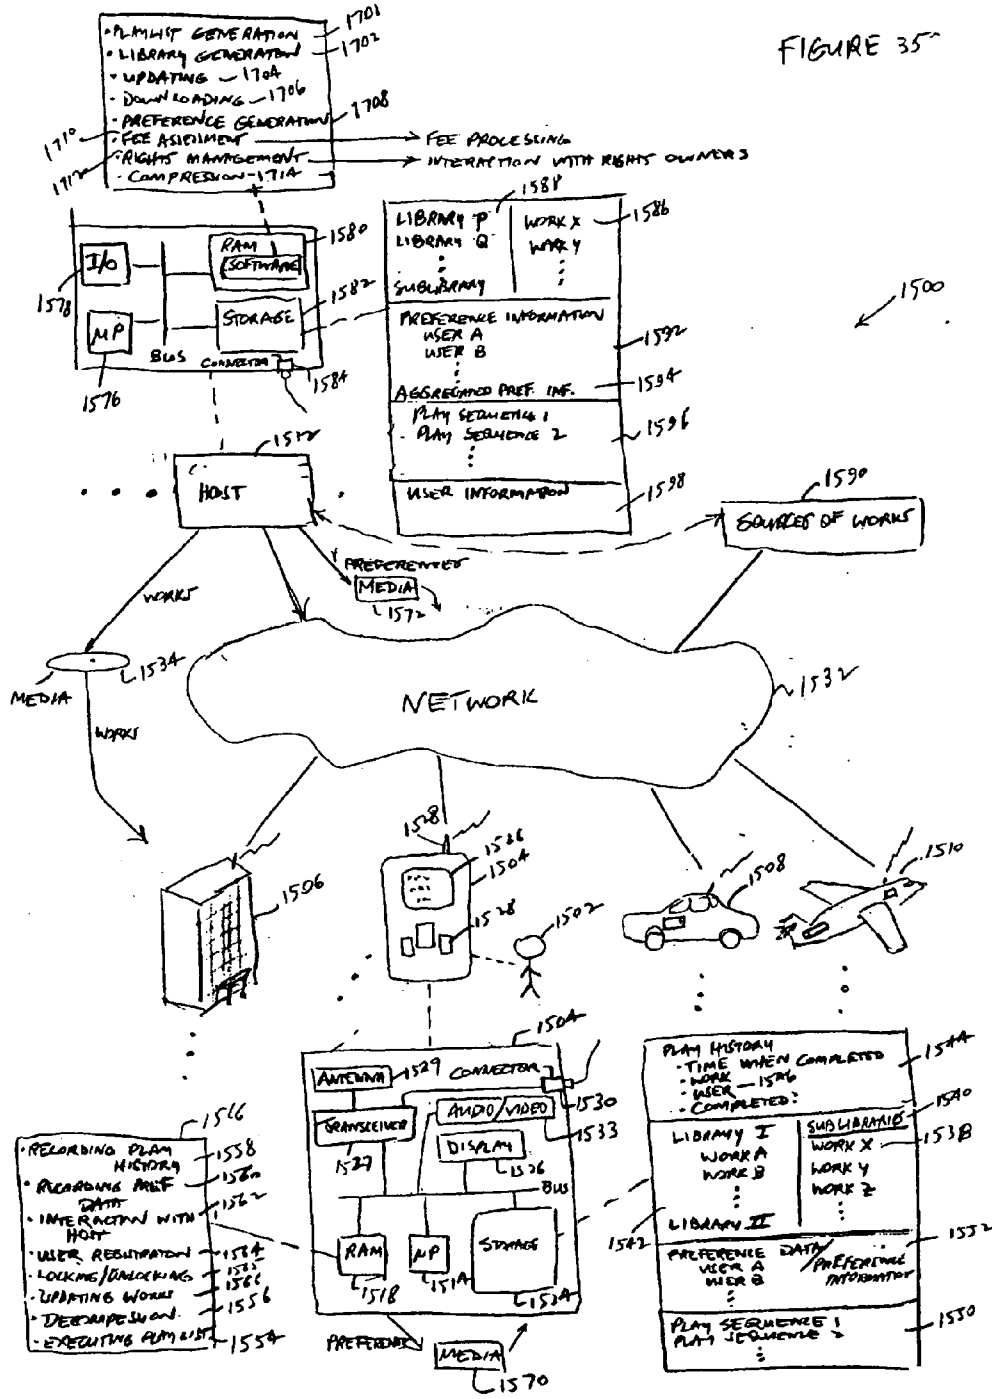 FIGURE 35
· PLAYLIST GENERATION 1701
· LIBRARY GENERATION 1702
· UPDATING 1704
· DOWNLOADING 1706
· PREFERENCE GENERATION 1708
1710 · FEE ASSESSMENT → FEE PROCESSING
1712 · RIGHTS MANAGEMENT → INTERACTION WITH RIGHTS OWNERS
· COMPRESSION 1714
I/O
1578
RAM
SOFTWARE
1580
STORAGE
1582
MP
1576
BUS
CONNECTOR
1584
1588
LIBRARY P
LIBRARY Q
SUBLIBRARY
WORK X
WORK Y
1586
PREFERENCE INFORMATION
USER A
USER B
1592
AGGREGATED PREF. INF.
1594
PLAY SEQUENCE 1
PLAY SEQUENCE 2
1596
USER INFORMATION
1598
1500
1512
HOST
1590
SOURCES OF WORKS
PREFERENCES
MEDIA
1572
WORKS
1534
MEDIA
WORKS
NETWORK
1532
1506
1528
1526
1504
1528
1502
1508
1510
1504
ANTENNA
1529
CONNECTOR
1530
TRANSCEIVER
1527
AUDIO/VIDEO
1533
DISPLAY
1526
BUS
RAM
1518
MP
1514
STORAGE
1524
PREFERENCES
MEDIA
1570
1516
· RECORDING PLAY
HISTORY 1558
· RECORDING PREF 1560
DATA
· INTERACTION WITH 1562
HOST
· USER REGISTRATION 1564
· LOCKING/UNLOCKING 1565
· UPDATING WORKS 1566
· DECOMPRESSION 1556
· EXECUTING PLAYLIST 1554
PLAY HISTORY
· TIME WHEN COMPLETED
· WORK
· USER 1546
· COMPLETED?
1544
LIBRARY I
WORK A
WORK B
LIBRARY II
1542
SUBLIBRARIES
1540
WORK X
1538
WORK Y
WORK Z
PREFERENCE DATA/
PREFERENCE
INFORMATION
USER A
USER B
1552
PLAY SEQUENCE 1
PLAY SEQUENCE 2
1550